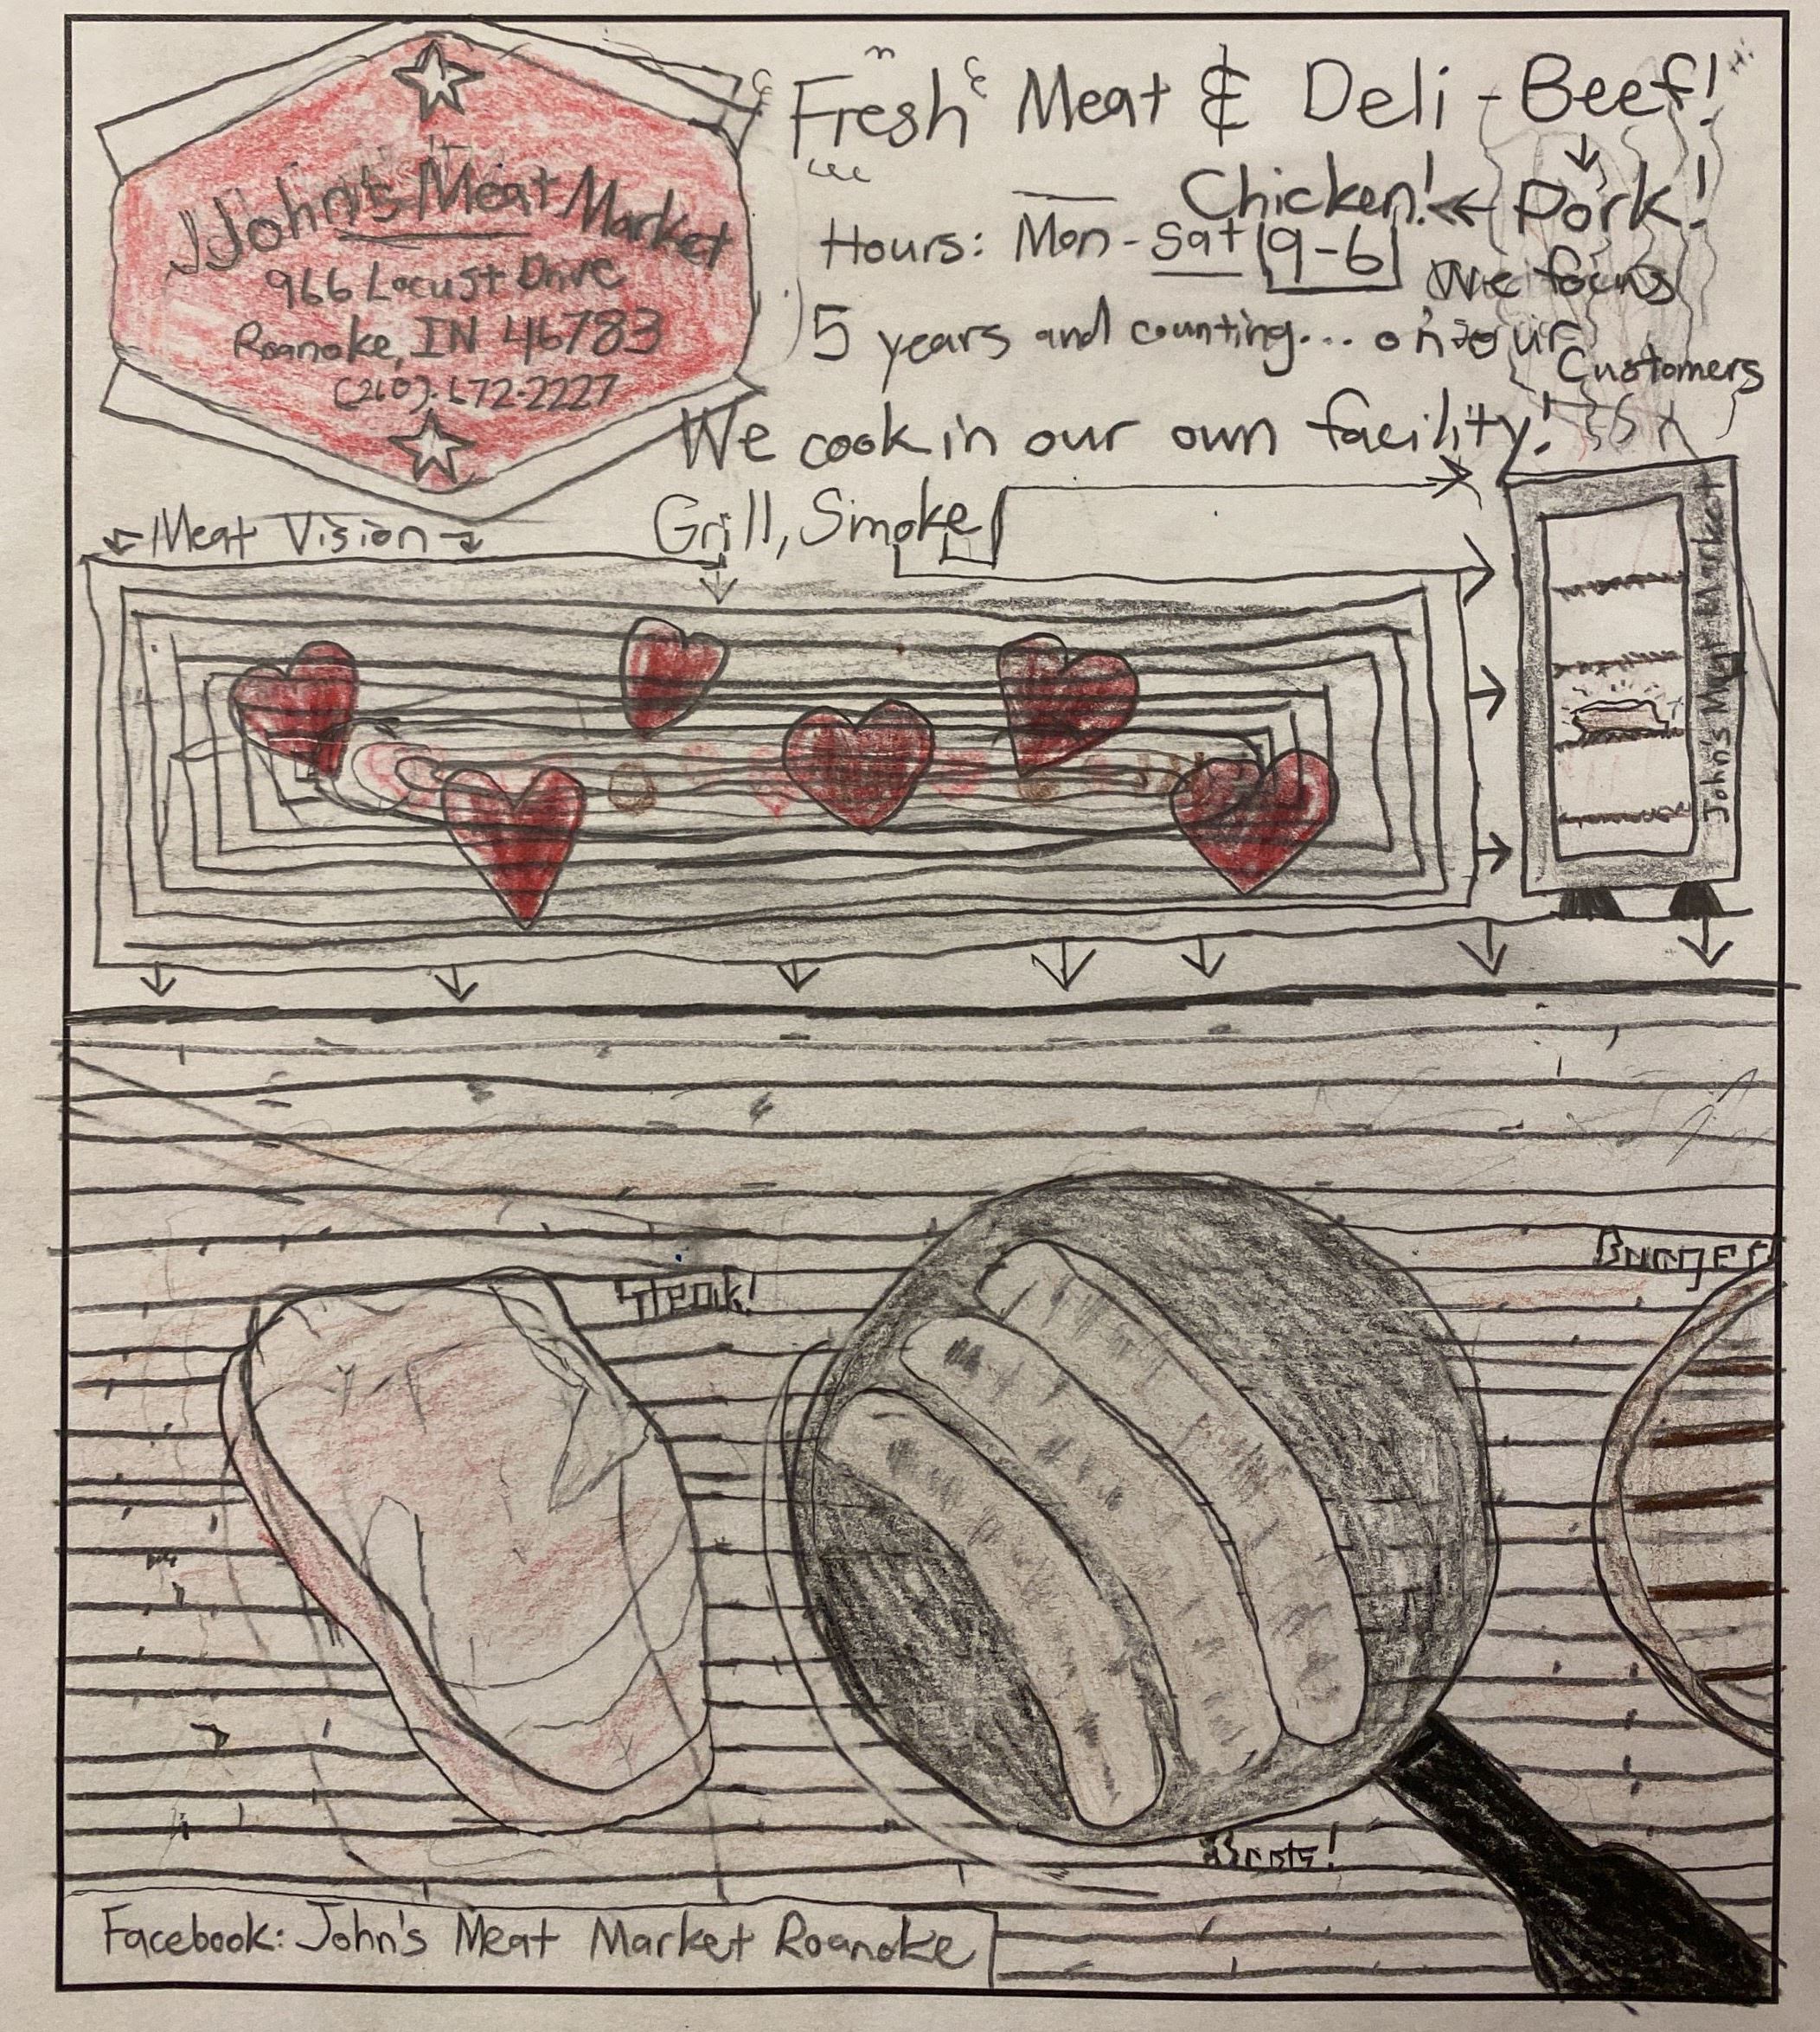 John's Meat Market
966 Locust Drive
Roanoke, IN 46783
(260).672-2227
Fresh Meat & Deli - Beef!
Hi
Chicken! Pork!
Hours: Mon - Sat 9-6
We focus
5 years and counting... on our
Customers
We cook in our own facility!
Grill, Smoke
Meat Vision
John's Meat Market
Steak!
Burger
Brats!
Facebook: John's Meat Market Roanoke